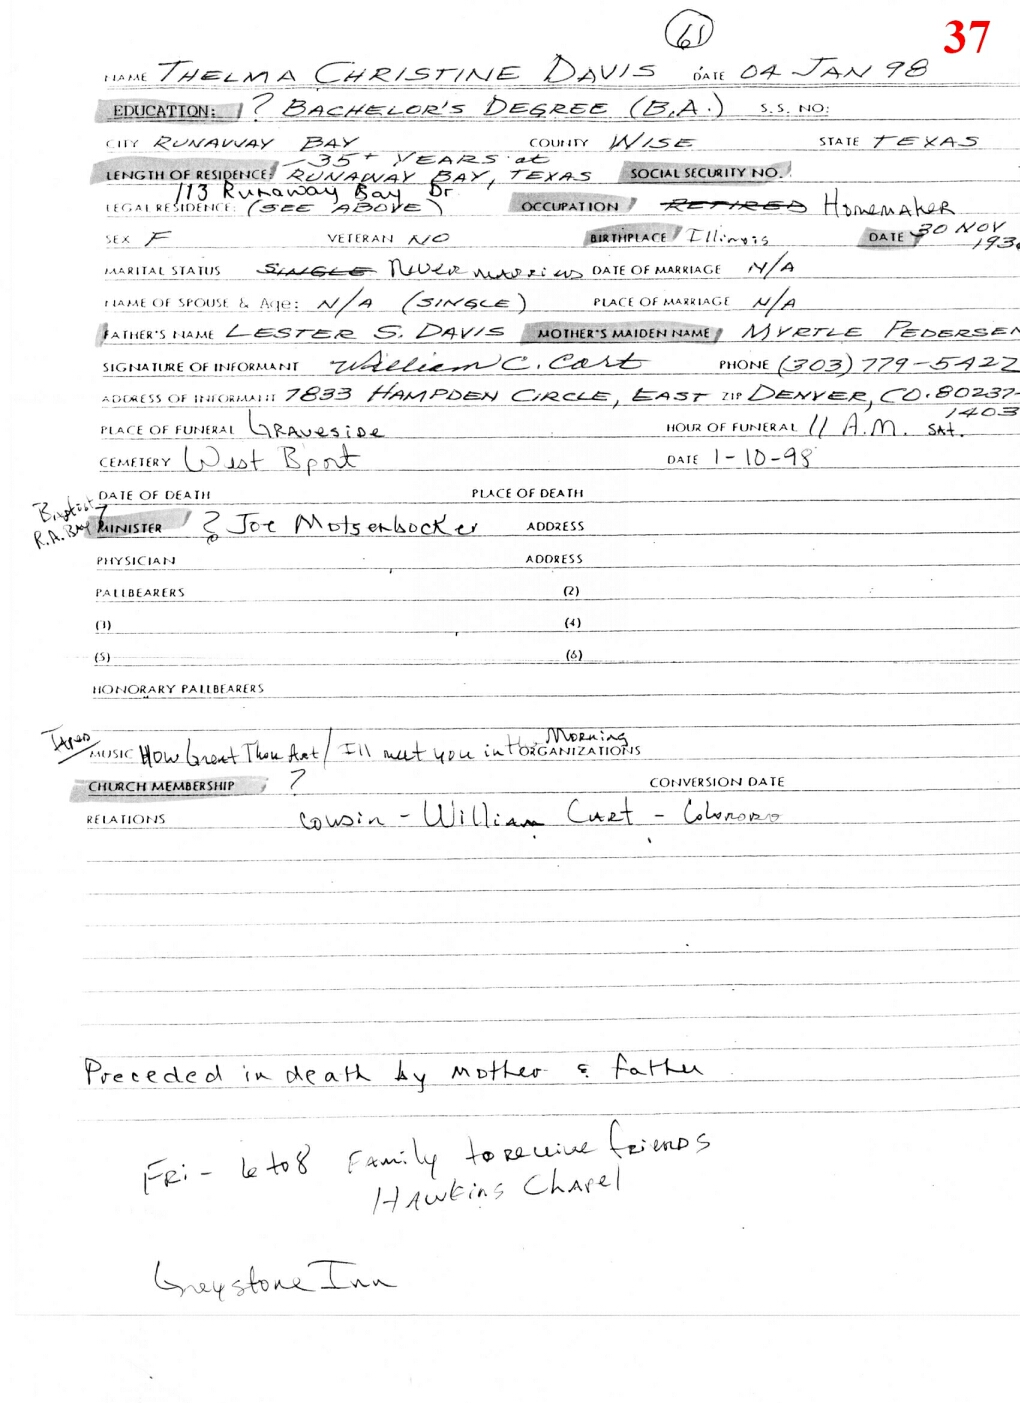 61
37
NAME THELMA CHRISTINE DAVIS DATE 04 JAN 98
EDUCATION: ? BACHELOR'S DEGREE (B.A.) S.S. NO:
CITY RUNAWAY BAY COUNTY WISE STATE TEXAS
35+ YEARS at
LENGTH OF RESIDENCE: RUNAWAY BAY, TEXAS SOCIAL SECURITY NO.
113 Runaway Bay Dr
LEGAL RESIDENCE: (SEE ABOVE) OCCUPATION RETIRED Homemaker
SEX F VETERAN NO BIRTHPLACE Illinois DATE 30 NOV
MARITAL STATUS SINGLE Never married DATE OF MARRIAGE N/A
NAME OF SPOUSE & Age: N/A (SINGLE) PLACE OF MARRIAGE N/A
FATHER'S NAME LESTER S. DAVIS MOTHER'S MAIDEN NAME MYRTLE PEDERSEN
SIGNATURE OF INFORMANT William C. Cart PHONE (303) 779-5422
ADDRESS OF INFORMANT 7833 HAMPDEN CIRCLE, EAST ZIP DENVER, CO. 80237-
1403
PLACE OF FUNERAL Graveside HOUR OF FUNERAL 11 A.M. SAT.
CEMETERY West Bport DATE 1-10-98
DATE OF DEATH PLACE OF DEATH
Baptist
R.A. Bay ? MINISTER ? Joe Motsenbocker ADDRESS
PHYSICIAN ADDRESS
PALLBEARERS (2)
(1) (4)
(5) (6)
HONORARY PALLBEARERS
Morning
MUSIC How Great Thou Art / I'll meet you in the ORGANIZATIONS
CHURCH MEMBERSHIP ? CONVERSION DATE
RELATIONS cousin - William Cart - Colorado
Preceded in death by mother & father
Fri - 6 to 8 Family to receive friends
Hawkins Chapel
Greystone Inn